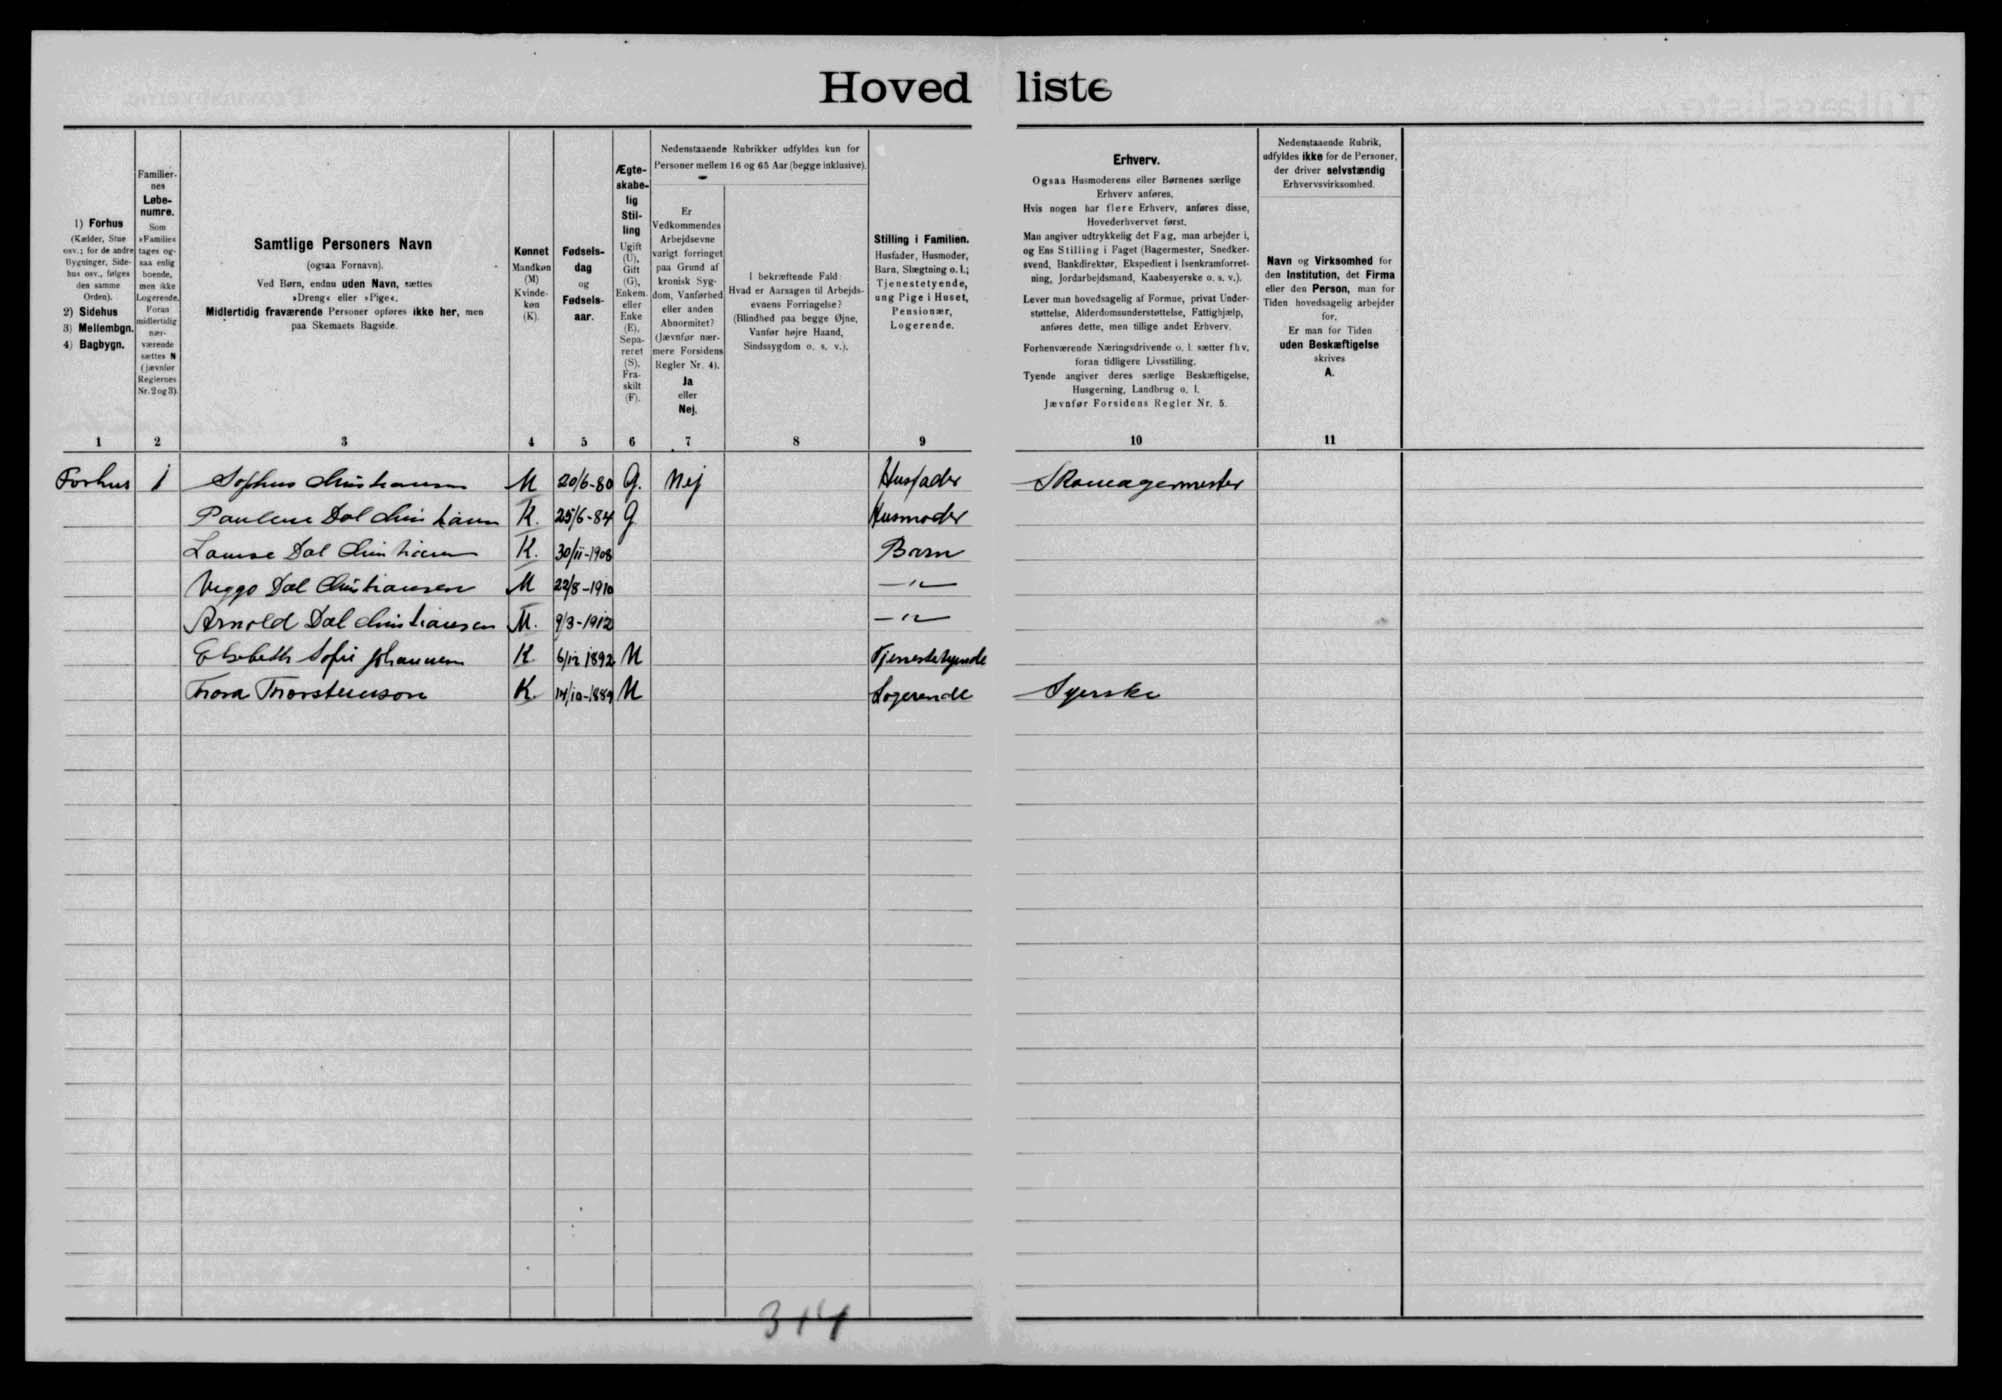 Hovedliste
1) Forhus
(Kælder, Stue
osv.; for de andre
Bygninger, Side-
hus osv., følges
den samme
Orden).
2) Sidehus
3) Mellembgn.
4) Bagbygn.
Familier-
nes
Løbe-
numre.
Som
»Familie«
tages og-
saa enlig
boende,
men ikke
Logerende.
Foran
midlertidig
nær-
værende
sættes N
(jævnfør
Reglernes
Nr. 2 og 3).
Samtlige Personers Navn
(ogsaa Fornavn).
Ved Børn, endnu uden Navn, sættes
»Dreng« eller »Pige«.
Midlertidig fraværende Personer opføres ikke her, men
paa Skemaets Bagside.
Kønnet
Mandkøn
(M)
Kvinde-
køn
(K).
Fødsels-
dag
og
Fødsels-
aar.
Ægte-
skabe-
lig
Stil-
ling
Ugift
(U),
Gift
(G),
Enkem.
eller
Enke
(E),
Sepa-
reret
(S),
Fra-
skilt
(F).
Nedenstaaende Rubrikker udfyldes kun for
Personer mellem 16 og 65 Aar (begge inklusive).
Er
Vedkommendes
Arbejdsevne
varigt forringet
paa Grund af
kronisk Syg-
dom, Vanførhed
eller anden
Abnormitet?
(Jævnfør nær-
mere Forsidens
Regler Nr. 4).
Ja
eller
Nej.
I bekræftende Fald:
Hvad er Aarsagen til Arbejds-
evnens Forringelse?
(Blindhed paa begge Øjne,
Vanfør højre Haand,
Sindssygdom o. s. v.).
Stilling i Familien.
Husfader, Husmoder,
Barn, Slægtning o. l.;
Tjenestetyende,
ung Pige i Huset,
Pensionær,
Logerende.
Erhverv.
Ogsaa Husmoderens eller Børnenes særlige
Erhverv anføres.
Hvis nogen har flere Erhverv, anføres disse,
Hovederhvervet først.
Man angiver udtrykkelig det Fag, man arbejder i,
og Ens Stilling i Faget (Bagermester, Snedker-
svend, Bankdirektør, Ekspedient i Isenkramforret-
ning, Jordarbejdsmand, Kaabesyerske o. s. v.).
Lever man hovedsagelig af Formue, privat Under-
støttelse, Alderdomsunderstøttelse, Fattighjælp,
anføres dette, men tillige andet Erhverv.
Forhenværende Næringsdrivende o. l. sætter fhv.
foran tidligere Livsstilling.
Tyende angiver deres særlige Beskæftigelse,
Husgerning, Landbrug o. l.
Jævnfør Forsidens Regler Nr. 5.
Nedenstaaende Rubrik,
udfyldes ikke for de Personer,
der driver selvstændig
Erhvervsvirksomhed.
Navn og Virksomhed for
den Institution, det Firma
eller den Person, man for
Tiden hovedsagelig arbejder
for.
Er man for Tiden
uden Beskæftigelse
skrives
A.
1 2 3 4 5 6 7 8 9 10 11
Forhus 1 Sofhus Christiansen M 20/6-80 G. Nej Husfader Skomagermester
Pauline Dal Christiansen K. 25/6-84 G Husmoder
Laurse Dal Christiansen K. 30/11-1908 Barn
Viggo Dal Christiansen M 22/8-1910 -"-
Arnold Dal Christiansen M. 9/3-1912 -"-
Elsebeth Sofie Johannesen K. 6/12 1892 U Tjenestetyende
Thora Thorsteinson K. 14/10-1889 U Logerende Syerske
314